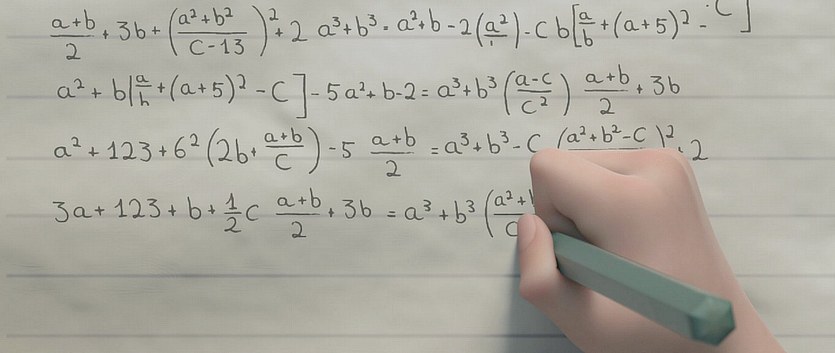 (a+b)/2 + 3b + ((a²+b²)/(C-13))² + 2 a³+b³ = a²+b-2(a²/ ) - C b[a/b + (a+5)² - C]
a² + b[a/b + (a+5)² - C] - 5a²+b-2 = a³+b³ ((a-c)/c²) (a+b)/2 + 3b
a² + 123 + 6² (2b + (a+b)/C) - 5 (a+b)/2 = a³+b³ - C (a²+b²-C )² · 2
3a + 123 + b + 1/2 c (a+b)/2 + 3b = a³ + b³ (a²+ / C